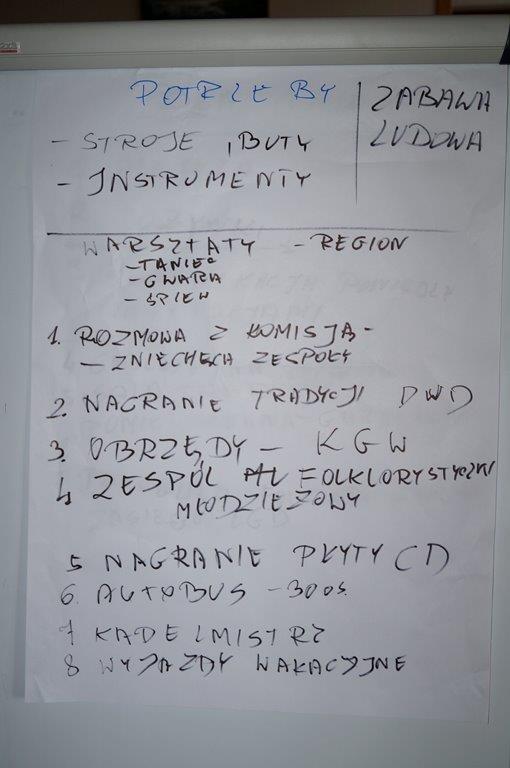 POTRZEBY
ZABAWA
LUDOWA
- STROJE, BUTY
- INSTRUMENTY
WARSZTATY - REGION
- TANIEC
- GWARA
- ŚPIEW
1. ROZMOWA Z KOMISJĄ -
- ZNIECHĘCA ZESPOŁY
2. NAGRANIE TRADYCJI DVD
3. OBRZĘDY - KGW
4 ZESPÓŁ FOLKLORYSTYCZNY
MŁODZIEŻOWY
5 NAGRANIE PŁYTY CD
6. AUTOBUS - 30 OS.
7 KAPELMISTRZ
8 WYJAZDY WAKACYJNE